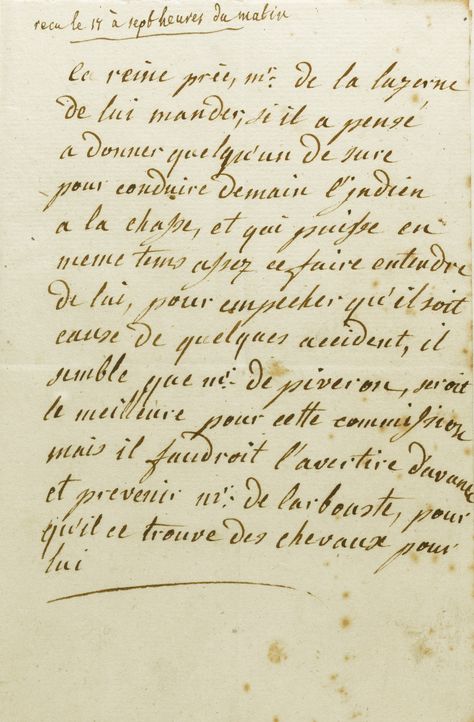 recu le 15 à sept heures du matin
la reine prie, mr. de la luzerne
de lui mander, si il a pensé
a donner quelqu'un de sure
pour conduire demain l'indien
a la chasse, et qui puisse en
meme tems assez ce faire entendre
de lui, pour empecher qu'il soit
cause de quelques accident, il
semble que mr. de piveron, seroit
le meilleure pour cette commission
mais il faudroit l'avertire d'avance
et prevenir mr. de larboaste, pour
qu'il ce trouve des chevaux pour
lui